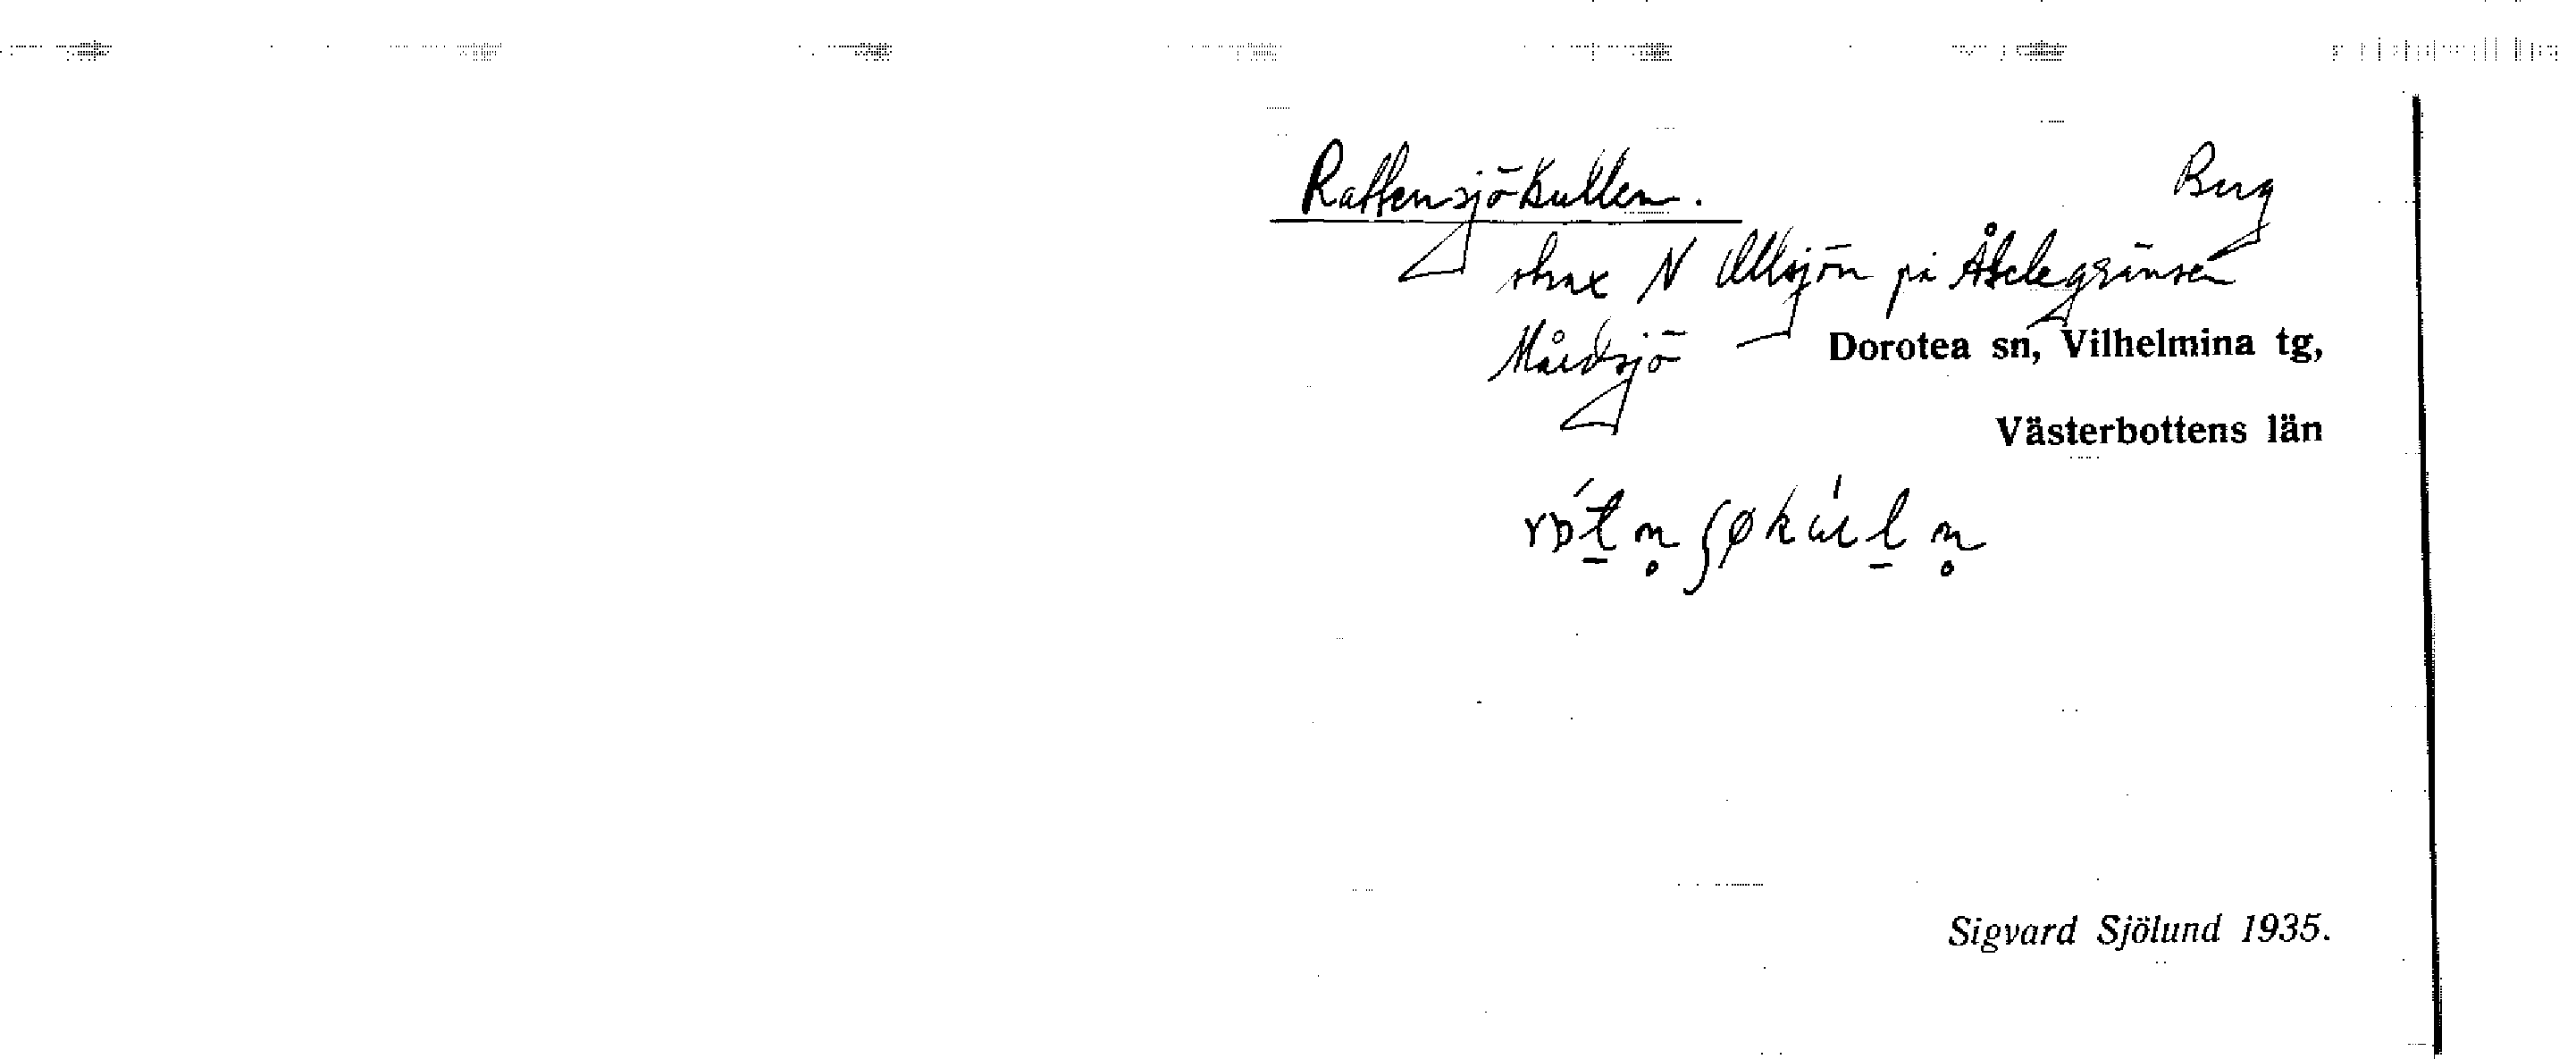 Rattensjökullen. Berg
strax N Ullsjön på Åselegränsen
Mårdsjö Dorotea sn, Vilhelmina tg,
Västerbottens län
Sigvard Sjölund 1935.